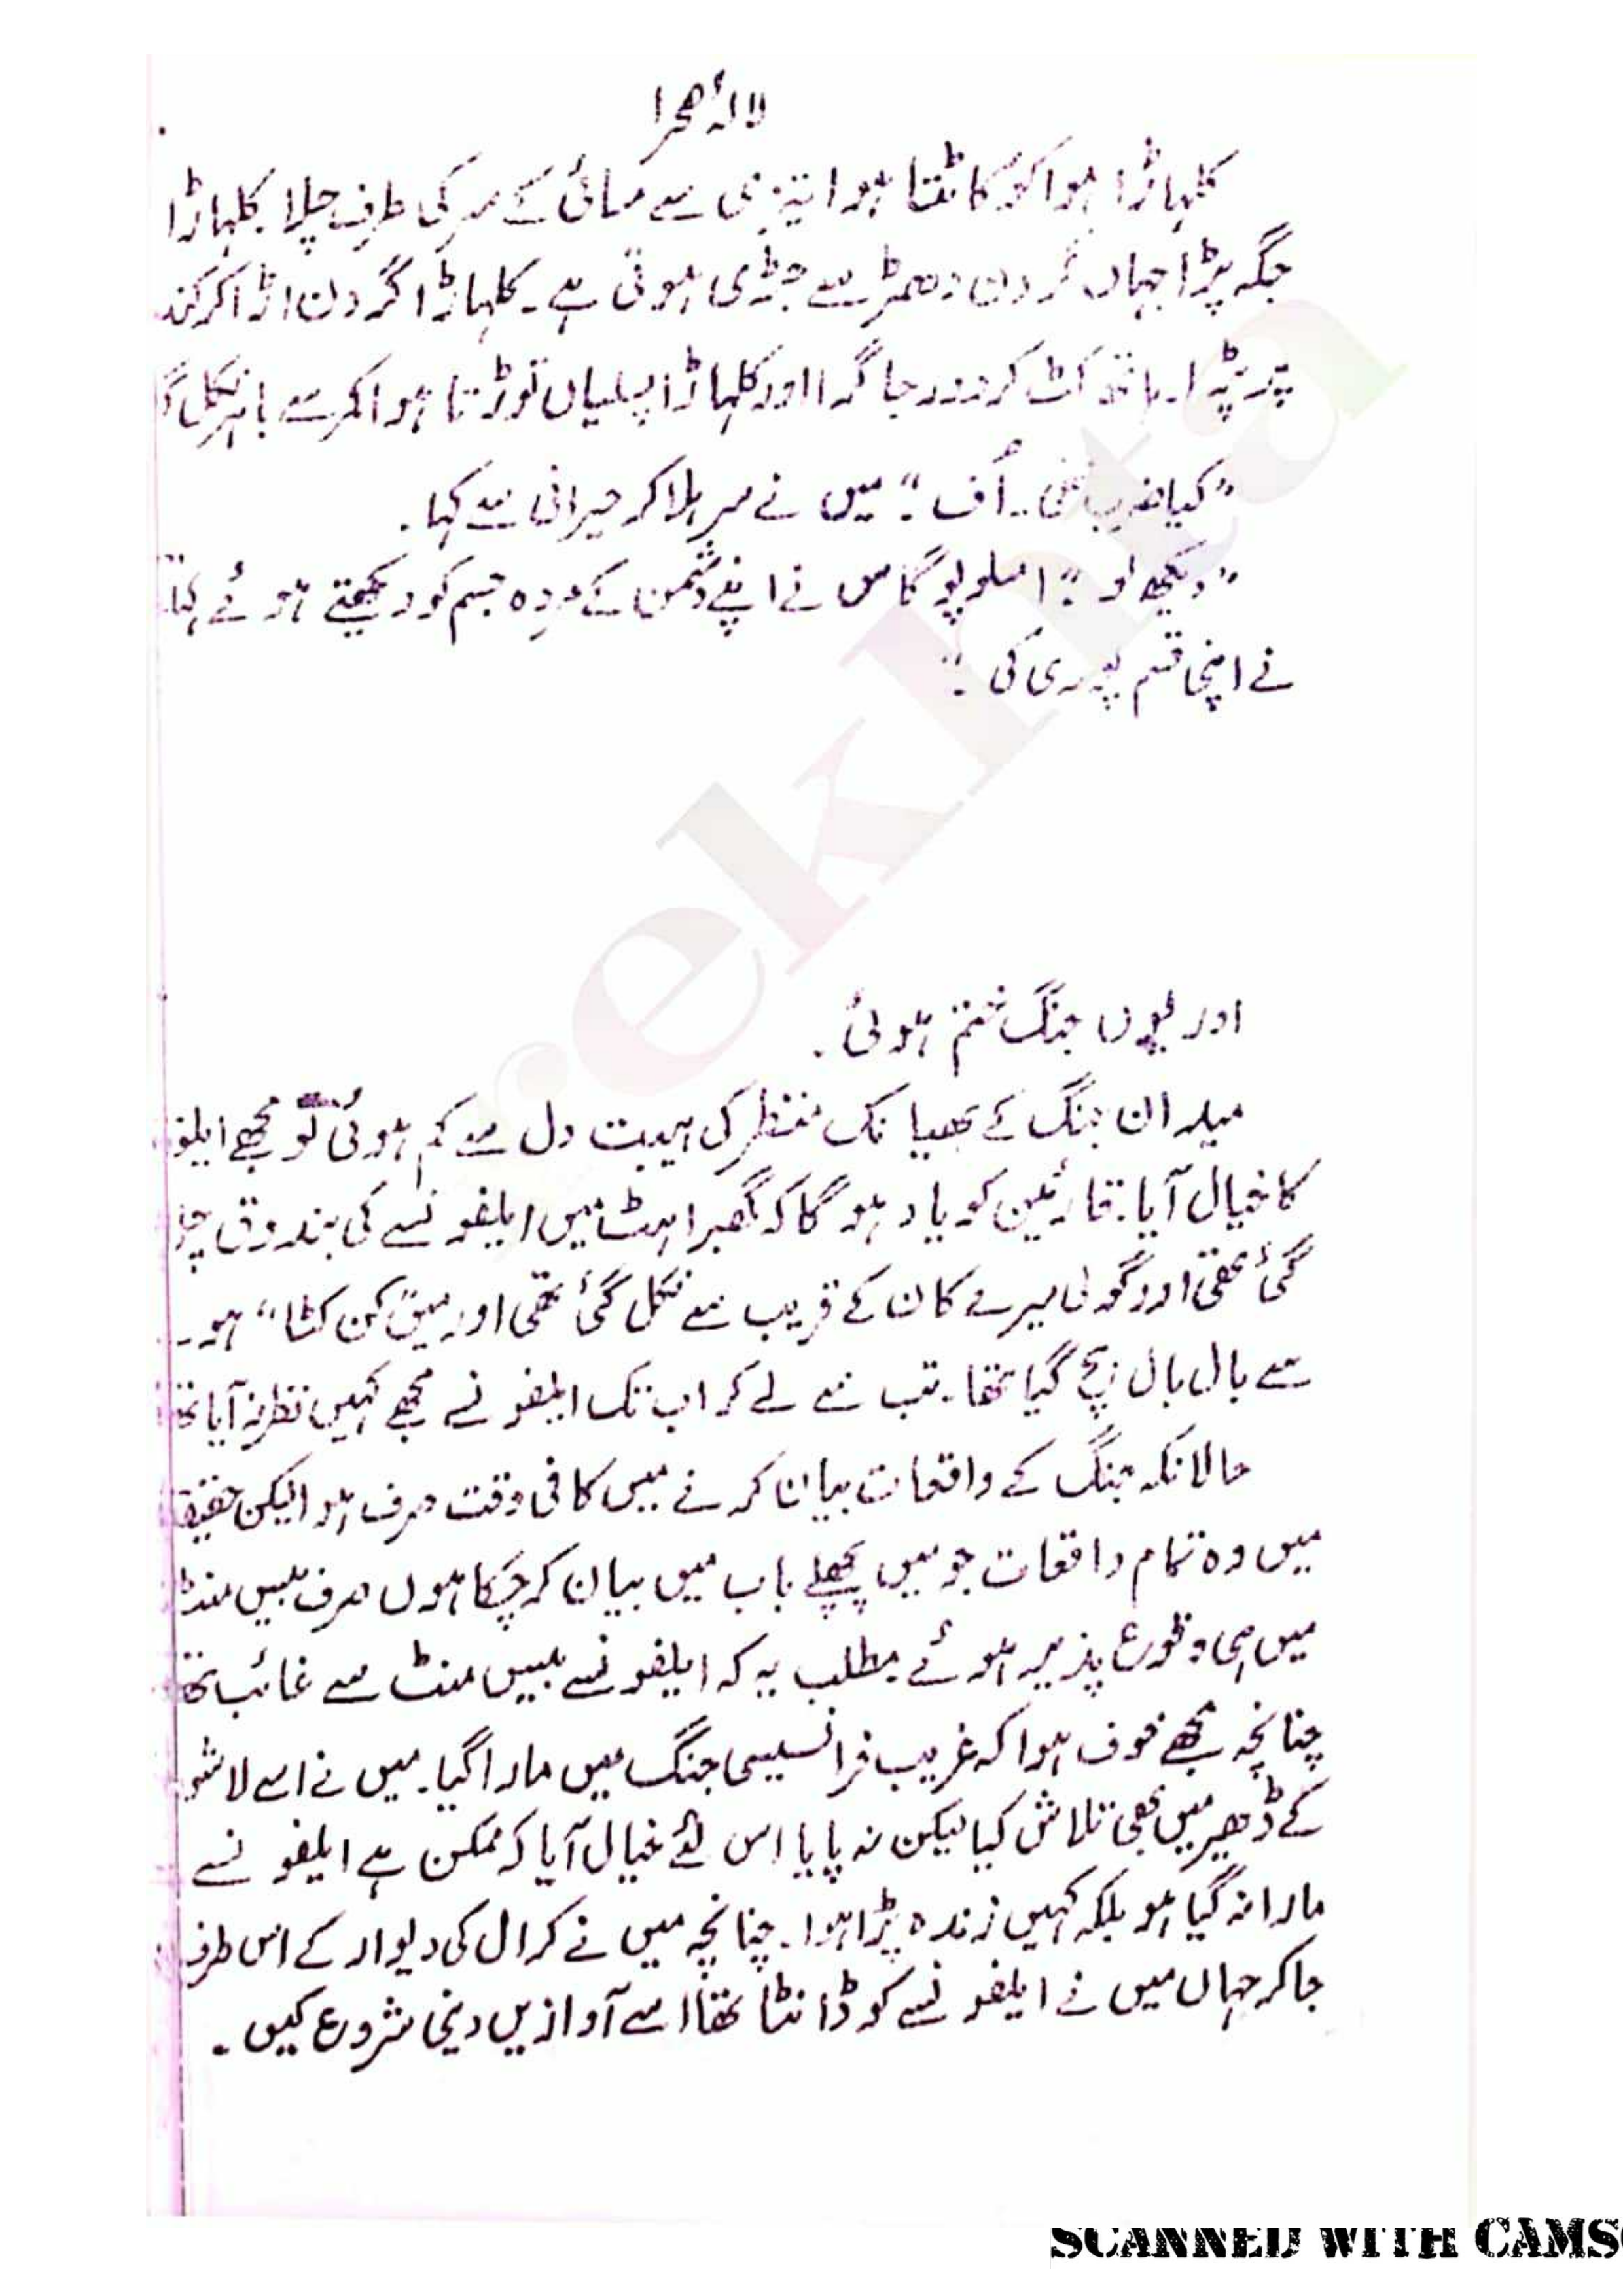 لالۂ صحرا
کلہاڑا ہوا کو کاٹتا ہوا تیزی سے مسائی کے سر کی طرف چلا۔ کلہاڑا
جگہ پڑا جہاں گردن دھڑ سے جڑی ہوتی ہے۔ کلہاڑا گردن اڑا کر
پر پڑا۔ ہاتھ کٹ کر دور جا گرا اور کلہاڑا پسلیاں توڑتا ہوا کمر سے باہر نکل
"کیا ضرب تھی۔ اُف"۔ میں نے سر ہلا کر حیرانی سے کہا۔
"دیکھ لو"۔ امسلوپوگاس نے اپنے دشمن کے مردہ جسم کو دیکھتے ہوئے کہا
نے اپنی قسم پوری کی۔"
اور یوں جنگ ختم ہوئی۔
میدان جنگ کے بھیانک منظر کی ہیبت دل سے کم ہوئی تو مجھے
کا خیال آیا۔ قارئین کو یاد ہوگا کہ گھبراہٹ میں ایلفونسے کی بندوق
گئی تھی اور گولی میرے کان کے قریب سے نکل گئی تھی اور میں "کن کٹا" ہو
سے بال بال بچ گیا تھا۔ تب سے لے کر اب تک ایلفونسے مجھے کہیں نظر نہ آیا
حالانکہ جنگ کے واقعات بیان کرنے میں کافی وقت صرف ہوا لیکن
میں وہ تمام واقعات جو میں پچھلے باب میں بیان کر چکا ہوں صرف بیس منٹ
میں ہی وقوع پذیر ہوئے۔ مطلب یہ کہ ایلفونسے بیس منٹ سے غائب
چنانچہ مجھے خوف ہوا کہ غریب فرانسیسی جنگ میں مارا گیا۔ میں نے اسے
کے ڈھیر میں بھی تلاش کیا لیکن نہ پایا اس لئے خیال آیا کہ ممکن ہے ایلفونسے
مارا نہ گیا ہو بلکہ کہیں زندہ پڑا ہوا۔ چنانچہ میں نے کرال کی دیوار کے اس طرف
جا کر جہاں میں نے ایلفونسے کو ڈانٹا تھا اسے آوازیں دینی شروع کیں۔
rekhta
SCANNED WITH CAMS